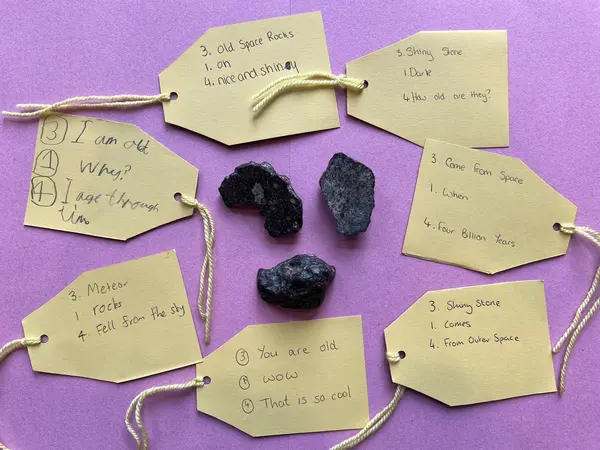 3. Old Space Rocks
1. oh
4. nice and shiny
3. Shiny Stone
1. Dark
4 How old are they?
3 I am old
1 Why?
4 I age through
time
3 Come From Space
1. When
4. Four Billion Years
3. Meteor
1 rocks
4. Fell from the sky
3 You are old
1 WOW
4 That is so cool
3. Shiny Stone
1. Comes
4. From Outer Space